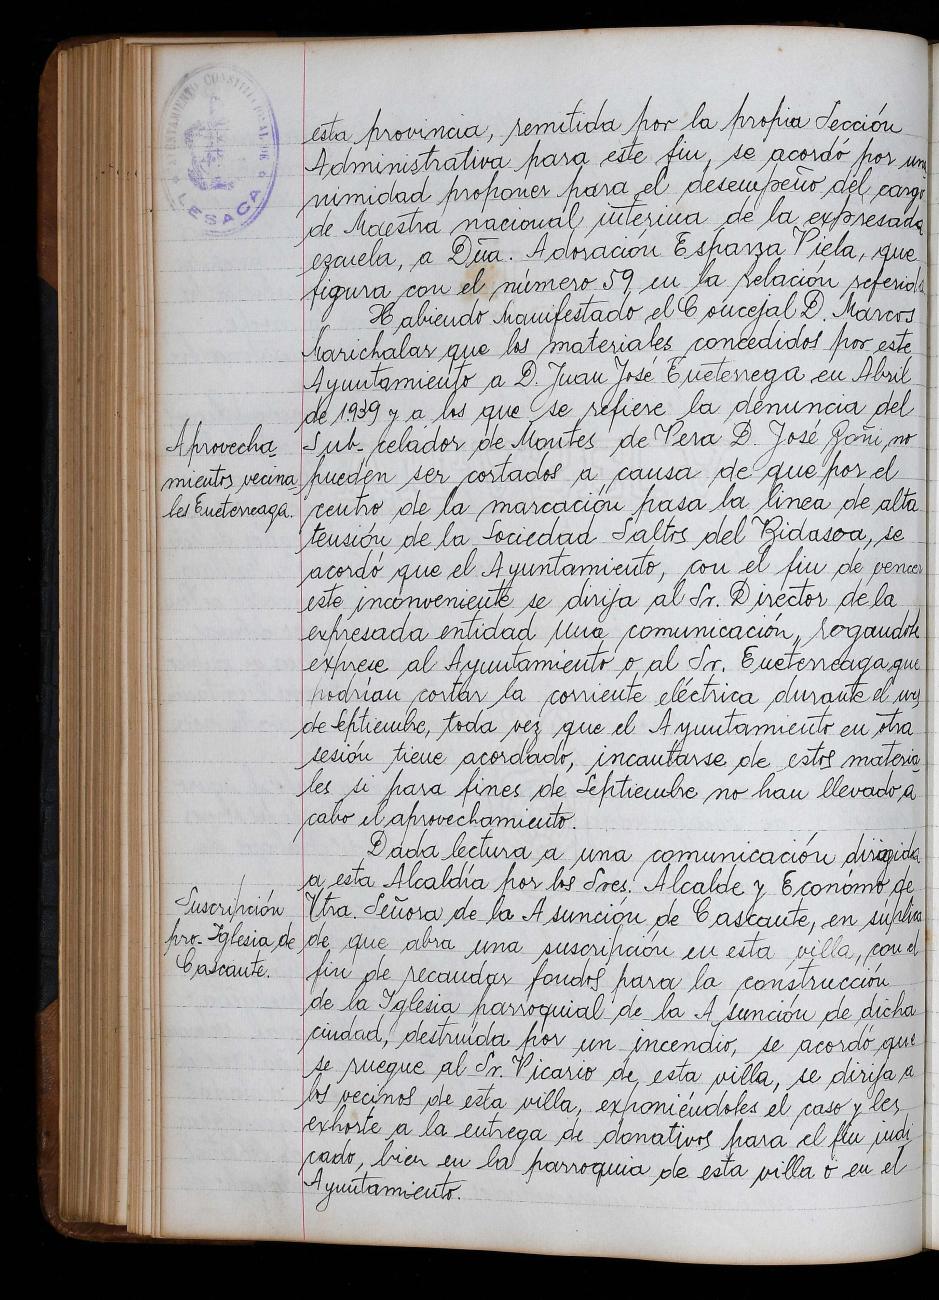 AYUNTAMIENTO CONSTITUCIONAL DE
LESACA
esta provincia, remitida por la propia Sección
Administrativa para este fin, se acordó por una
nimidad proponer para el desempeño del cargo
de Maestra nacional interina de la expresada
escuela, a Dña. Adoración Esparza Piela, que
figura con el número 59, en la relación referida
Habiendo manifestado el Concejal D. Marcos
Marichalar que los materiales concedidos por este
Ayuntamiento a D. Juan José Eneterreaga en Abril
de 1939 y a los que se refiere la denuncia del
Aprovecha
mientos vecina
les Eneterreaga.
Sub-celador de Montes de Vera D. José Goñi, no
pueden ser cortados a causa de que por el
centro de la marcación pasa la linea de alta
tensión de la Sociedad Saltos del Bidasoa, se
acordó que el Ayuntamiento, con el fin de vencer
este inconveniente se dirija al Sr. Director de la
expresada entidad una comunicación, rogandole
exprese al Ayuntamiento o al Sr. Eneterreaga, que
podrían cortar la corriente eléctrica durante el mes
de Septiembre, toda vez que el Ayuntamiento en otra
sesión tiene acordado, incautarse de estos materia
les si para fines de Septiembre no han llevado a
cabo el aprovechamiento.
Dada lectura a una comunicación dirigida
a esta Alcaldía por los Sres. Alcalde y Ecónomo de
Suscripción
pro-Iglesia de
Cascante.
Ntra. Señora de la Asunción de Cascante, en súplica
de que abra una suscripción en esta villa, con el
fin de recaudar fondos para la construcción
de la Iglesia parroquial de la Asunción de dicha
ciudad, destruída por un incendio, se acordó que
se ruegue al Sr. Vicario de esta villa, se dirija a
los vecinos de esta villa, exponiéndoles el caso y les
exhorte a la entrega de donativos para el fin indi
cado, bien en la parroquia de esta villa o en el
Ayuntamiento.